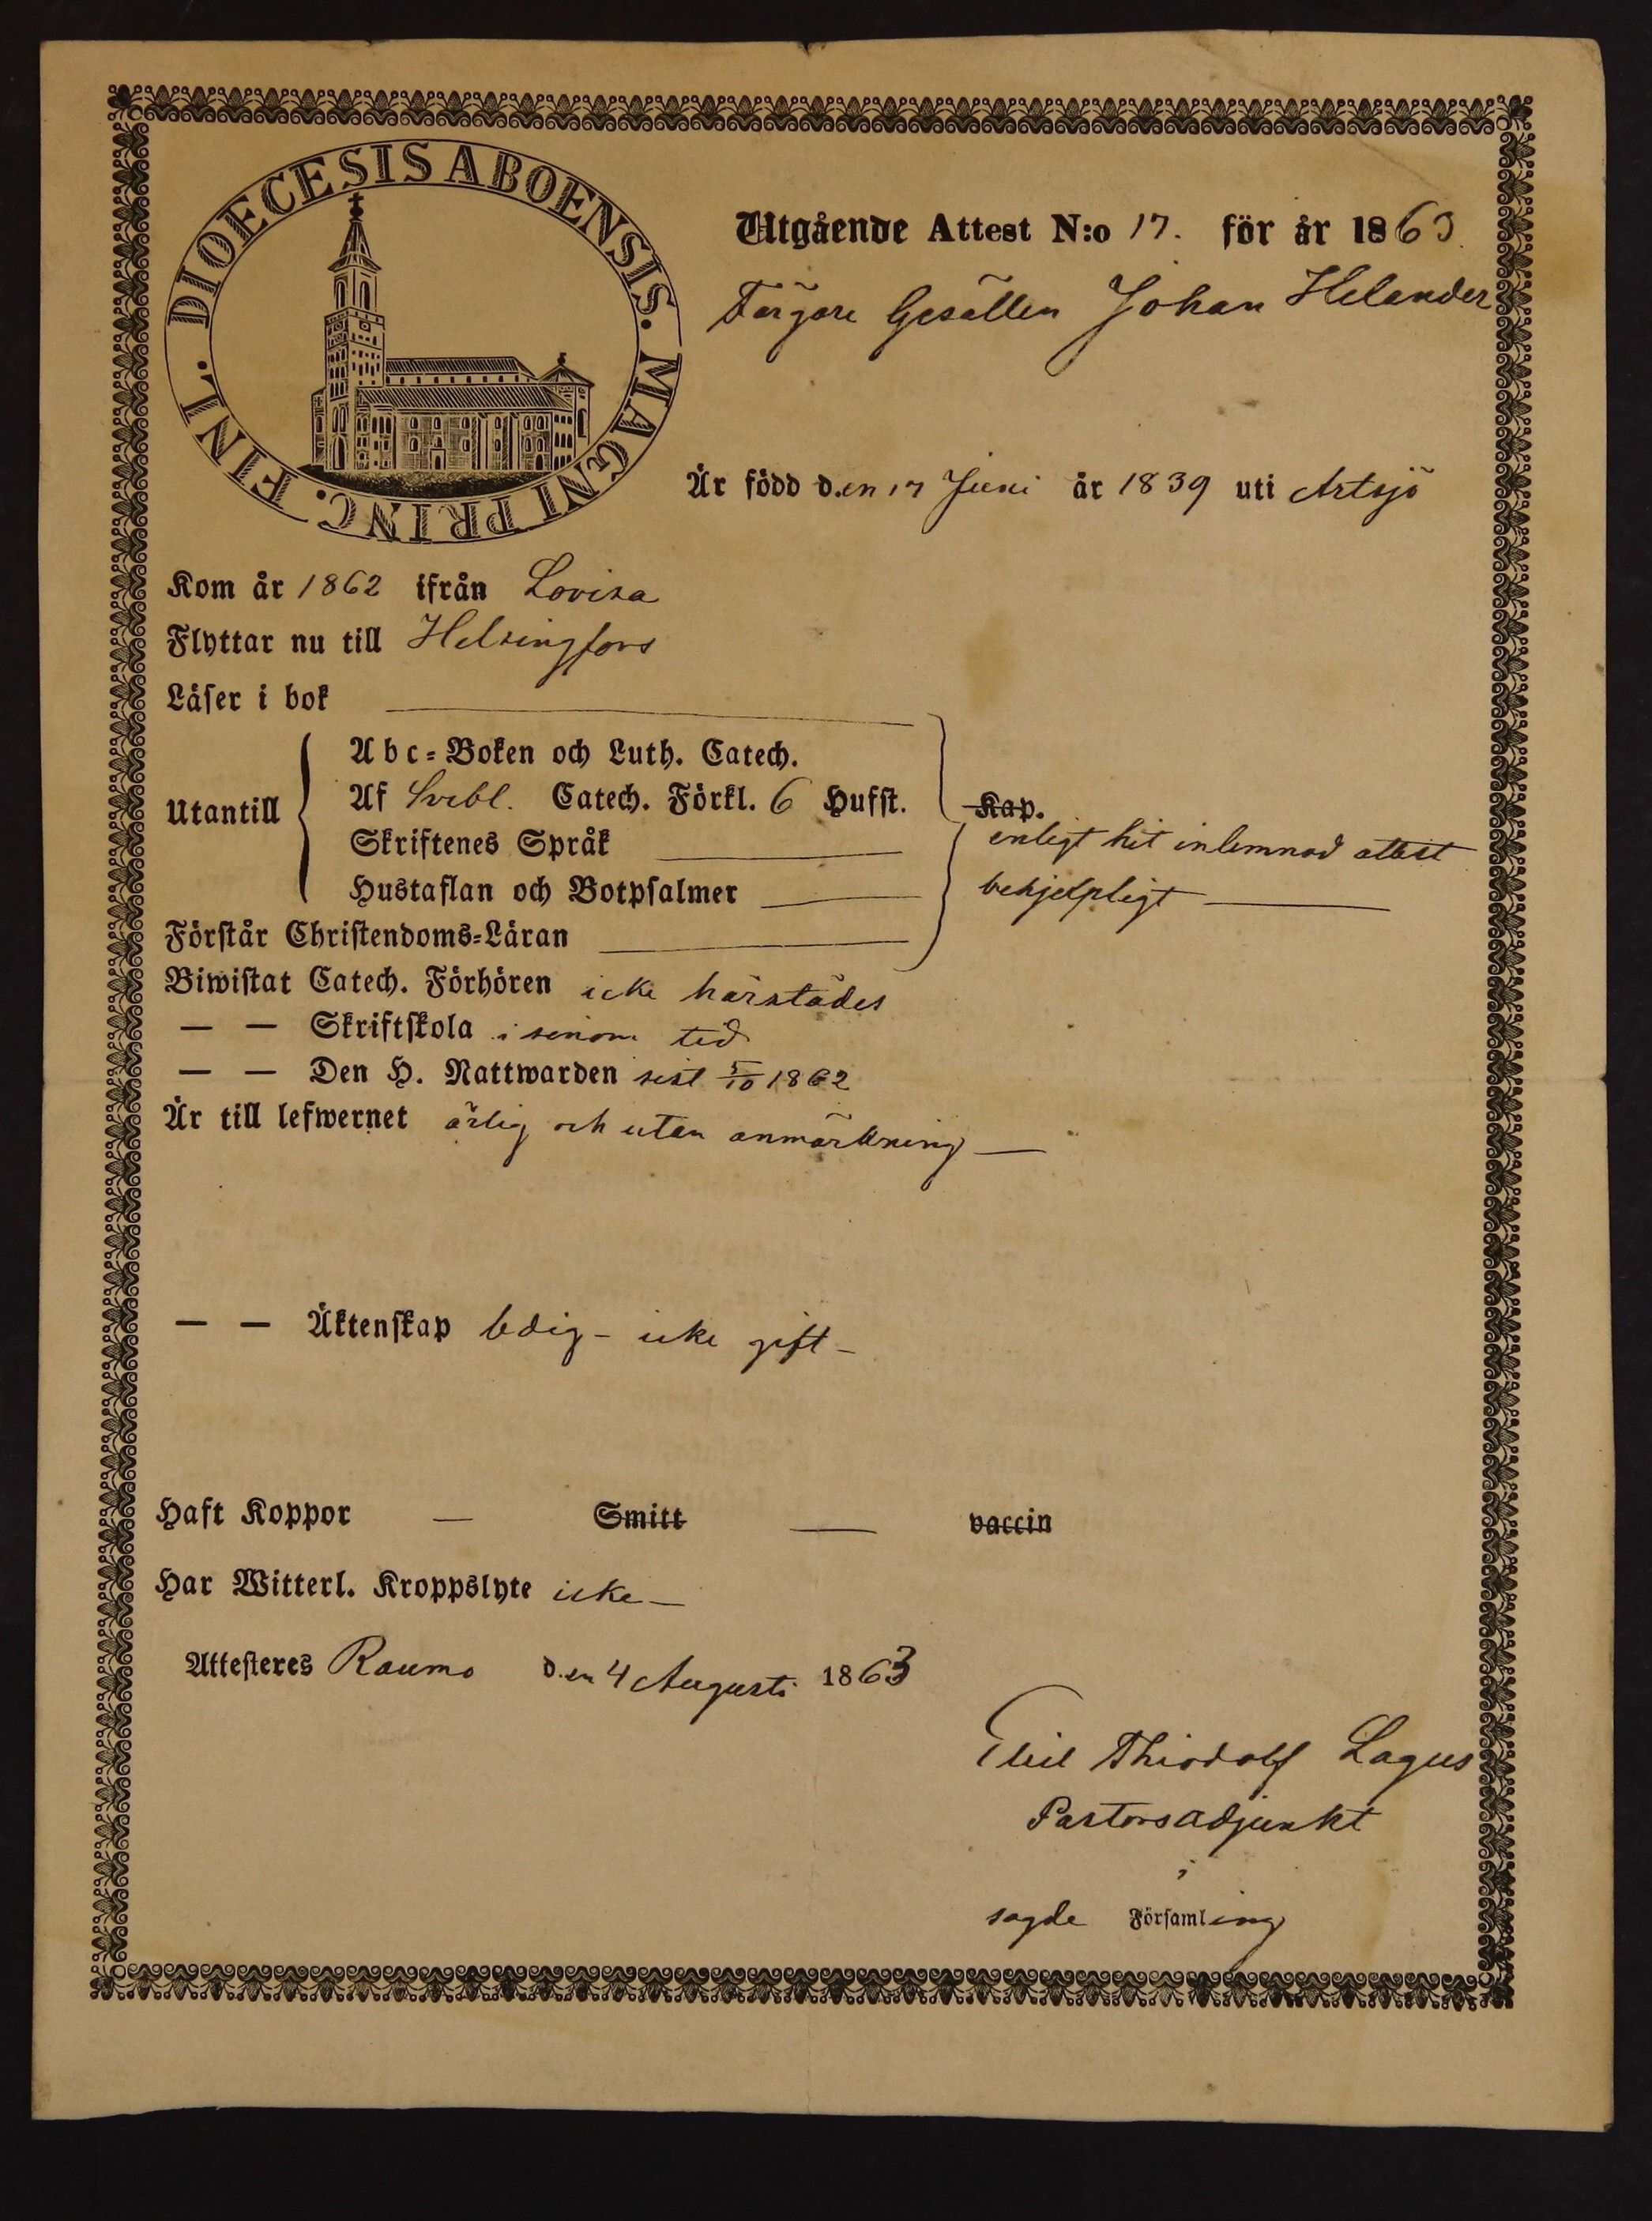 DIOECESIS ABOENSIS. MAGNI PRINC. FINL.
Utgående Attest N:o 17. för år 1863
Färgare Gesällen Johan Helander
Är född d.en 17 Juni år 1839 uti Artsjö
Kom år 1862 ifrån Lovisa
Flyttar nu till Helsingfors
Läser i bok
Abc-Boken och Luth. Catech.
Utantill
Af Svebl. Catech. Förkl. 6 Hufst. Kap.
Skriftenes Språk
enligt hit inlemnad attest
Hustaflan och Botpsalmer
behjelpligt
Förstår Christendoms-Läran
Biwistat Catech. Förhören icke härstädes
— — Skriftskola i sinom tid
— — Den H. Nattwarden sist 5/10 1862
Är till lefwernet ärlig och utan anmärkning —
— — Äktenskap ledig - icke gift -
Haft Koppor — Smitt — vaccin
Har Witterl. Kroppslyte icke —
Attesteres Raumo d.en 4 Augusti 1863
Thiodolf Lagus
Pastorsadjunkt
i
sagde Församling